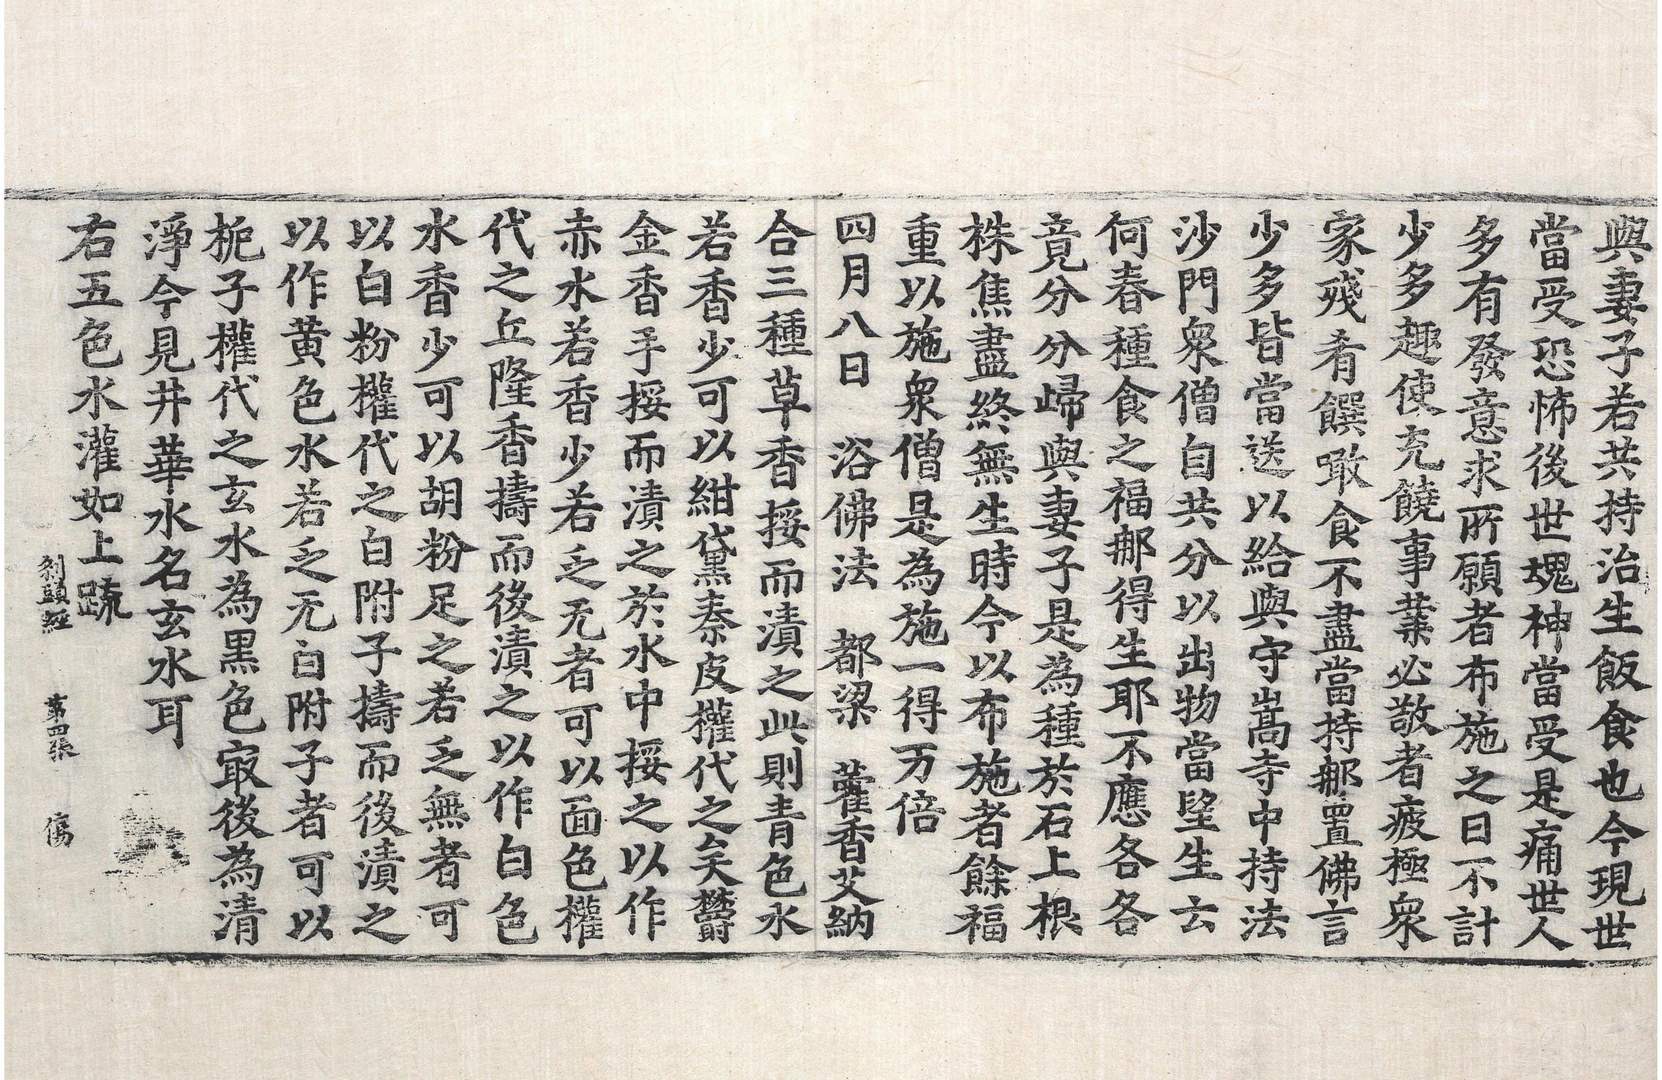 與妻子若共持治生飯食也今現世
當受恐怖後世魂神當受是痛世人
多有發意求所願者布施之日不計
少多趣使充饒事業必敬者疲極衆
家殘肴饌噉食不盡當持挪置佛言
少多皆當送以給與守嵩寺中持法
沙門衆僧自共分以出物當望生云
何春種食之福挪得生耶不應各各
竟分分歸與妻子是為種於石上根
株焦盡終無生時今以布施者餘福
重以施衆僧是為施一得万倍
四月八日 浴佛法 都梁 藿香艾納
合三種草香挼而漬之此則青色水
若香少可以紺黛秦皮權代之矣欝
金香手挼而漬之於水中挼之以作
赤水若香少若乏无者可以面色權
代之丘隆香擣而後漬之以作白色
水香少可以胡粉足之若乏無者可
以白粉權代之白附子擣而後漬之
以作黄色水若乏无白附子者可以
梔子權代之玄水為黒色㝡後為清
淨今見井華水名玄水耳
右五色水灌如上疏
刹頭經 第四張 傷